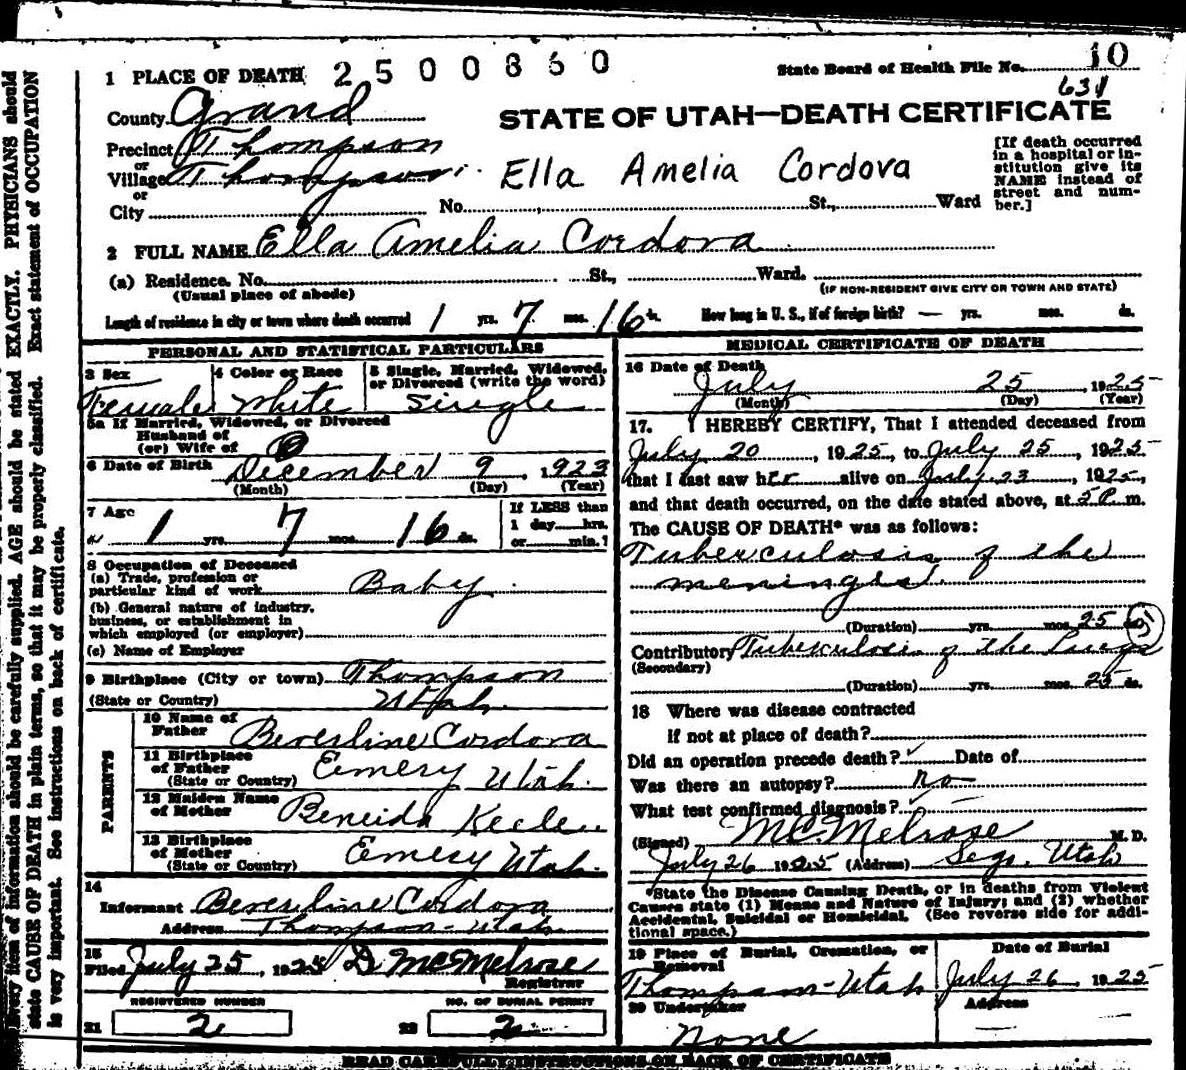 10
1 PLACE OF DEATH 2500860 State Board of Health File No.
631
County Grand STATE OF UTAH—DEATH CERTIFICATE
Precinct Thompson
or
Village Thompson Ella Amelia Cordova
or
City No. St., Ward
[If death occurred
in a hospital or in-
stitution give its
NAME instead of
street and num-
ber.]
2 FULL NAME Ella Amelia Cordova
(a) Residence. No. St., Ward.
(Usual place of abode) (IF NON-RESIDENT GIVE CITY OR TOWN AND STATE)
Length of residence in city or town where death occurred 1 yrs. 7 mos. 16 ds. How long in U. S., if of foreign birth? — yrs. mos. ds.
PERSONAL AND STATISTICAL PARTICULARS
3 Sex 4 Color or Race 5 Single, Married, Widowed,
or Divorced (write the word)
Female White Single
5a If Married, Widowed, or Divorced
Husband of
(or) Wife of
6 Date of Birth December 9, 1923
(Month) (Day) (Year)
7 Age If LESS than
1 yrs. 7 mos. 16 ds. 1 day hrs.
or min.?
8 Occupation of Deceased
(a) Trade, profession or
particular kind of work Baby
(b) General nature of industry,
business, or establishment in
which employed (or employer)
(c) Name of Employer
9 Birthplace (City or town) Thompson
(State or Country) Utah
PARENTS
10 Name of
Father Beverline Cordova
11 Birthplace
of Father Emery Utah.
(State or Country)
12 Maiden Name
of Mother Beneida Keele
13 Birthplace
of Mother Emery Utah.
(State or Country)
14
Informant Beverline Cordova
Address Thompson - Utah
15
Filed July 25, 1925 D McMelrose
Registrar
REGISTERED NUMBER NO. OF BURIAL PERMIT
21 2 22 2
MEDICAL CERTIFICATE OF DEATH
16 Date of Death
July 25, 1925
(Month) (Day) (Year)
17. I HEREBY CERTIFY, That I attended deceased from
July 20, 1925, to July 25, 1925
that I last saw her alive on July 23, 1925,
and that death occurred, on the date stated above, at 5 P. m.
The CAUSE OF DEATH* was as follows:
Tuberculosis of the
meninges.
(Duration) yrs. mos. 25 ds.
Contributory Tuberculosis of the Lungs
(Secondary)
(Duration) yrs. mos. 25 ds.
18 Where was disease contracted
if not at place of death?
Did an operation precede death? Date of
Was there an autopsy? no
What test confirmed diagnosis?
(Signed) McMelrose M. D.
July 26 1925 (Address) Sego, Utah
*State the Disease Causing Death, or in deaths from Violent
Causes state (1) Means and Nature of Injury; and (2) whether
Accidental, Suicidal or Homicidal. (See reverse side for addi-
tional space.)
19 Place of Burial, Cremation, or
Removal Date of Burial
Thompson - Utah July 26, 1925
20 Undertaker Address
None —
READ CAREFULLY INSTRUCTIONS ON BACK OF CERTIFICATE
Every item of information should be carefully supplied. AGE should be stated EXACTLY. PHYSICIANS should
state CAUSE OF DEATH in plain terms, so that it may be properly classified. Exact statement of OCCUPATION
is very important. See instructions on back of certificate.